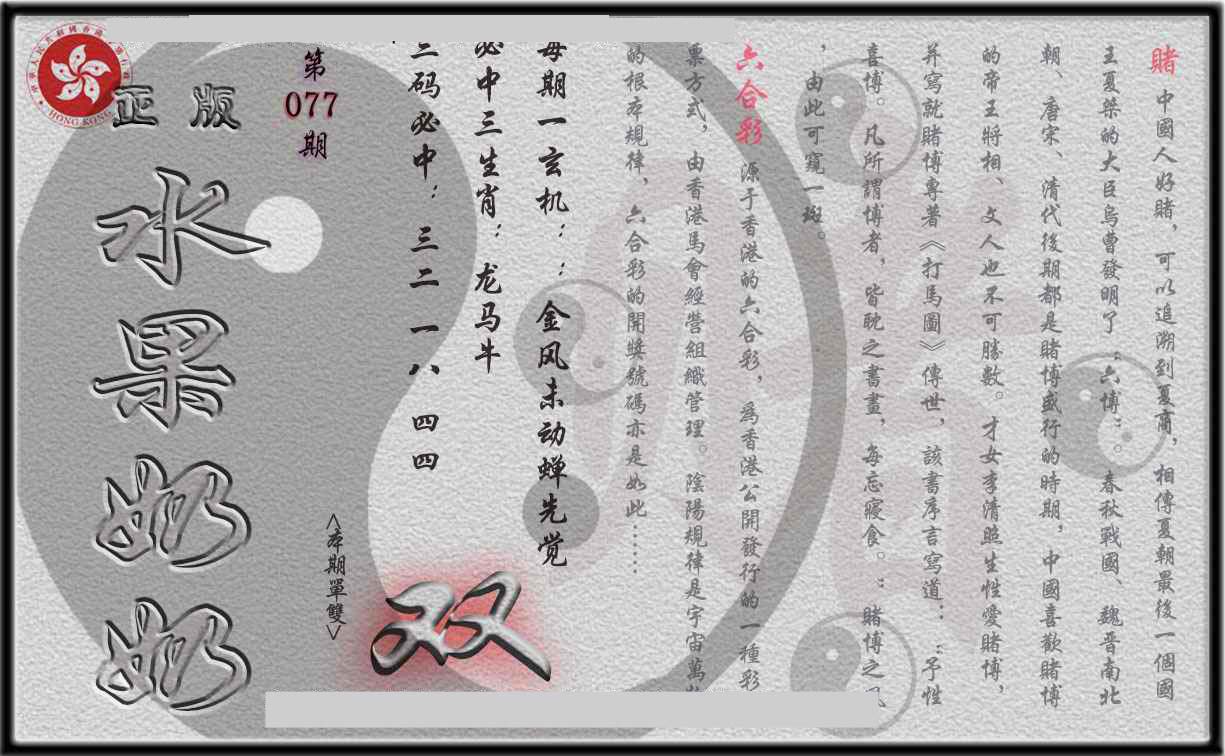 賭 中國人好賭，可以追溯到夏商，相傳夏朝最後一個國
王夏桀的大臣烏曹發明了：六博：。春秋戰國、魏晉南北
朝、唐宋、清代後期都是賭博盛行的時期，中國喜歡賭博
的帝王將相、文人也不可勝數。才女李清照生性愛賭博，
并寫就賭博專著《打馬圖》傳世，該書序言寫道：：予性
喜博。凡所謂博者，皆耽之書晝，每忘寢食。：賭博之
，由此可窺一斑。
六合彩 源于香港的六合彩，為香港公開發行的一種彩
票方式，由香港馬會經營組織管理。陰陽規律是宇宙萬
的根本規律、六合彩的開獎號碼亦是如此……
每期一玄机：：金风未动蝉先觉
必中三生肖：龙马牛
三码必中：三二 一八 四四
第
077
期
<本期單雙>
双
正版
水果奶奶
HONG KONG